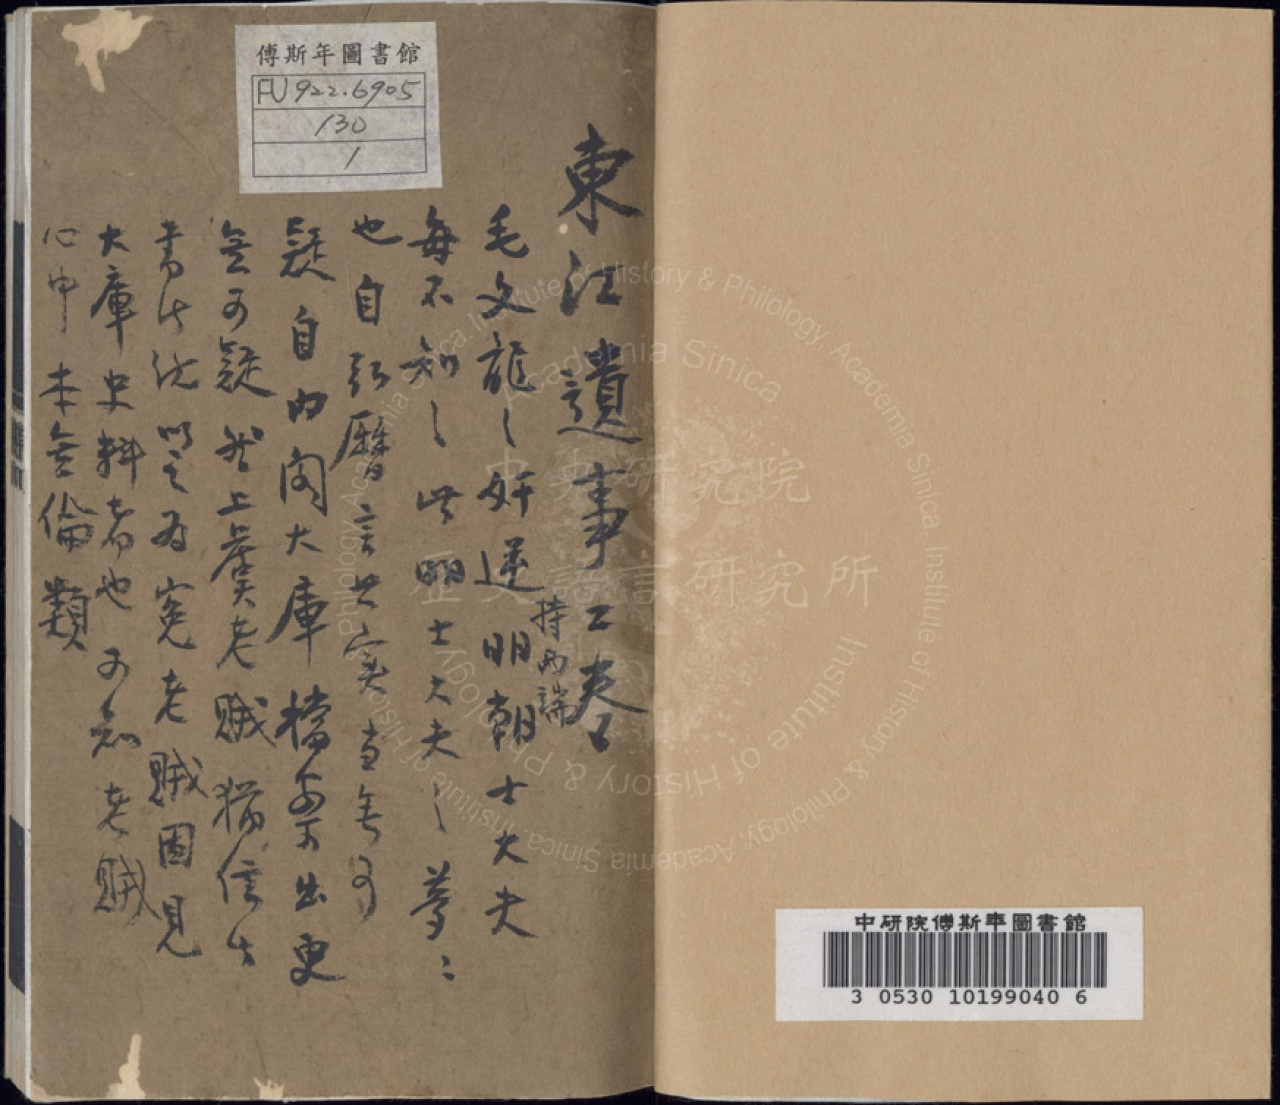 傅斯年圖書館
FU922.6905
130
1
東江遺事二卷
毛文龍之奸逆明朝士大夫
持兩端
每不知之此明士大夫之夢〻
也自弘曆言其實宜無可
疑自內閣大庫檔案出更
無可疑然上虞老賊猶信此
書此說以之為冤老賊固見
大庫史料者也可知老賊
心中本無倫類
中研院傅斯年圖書館
3 0530 10199040 6
中央研究院
歷史語言研究所
Institute of History & Philology, Academia Sinica